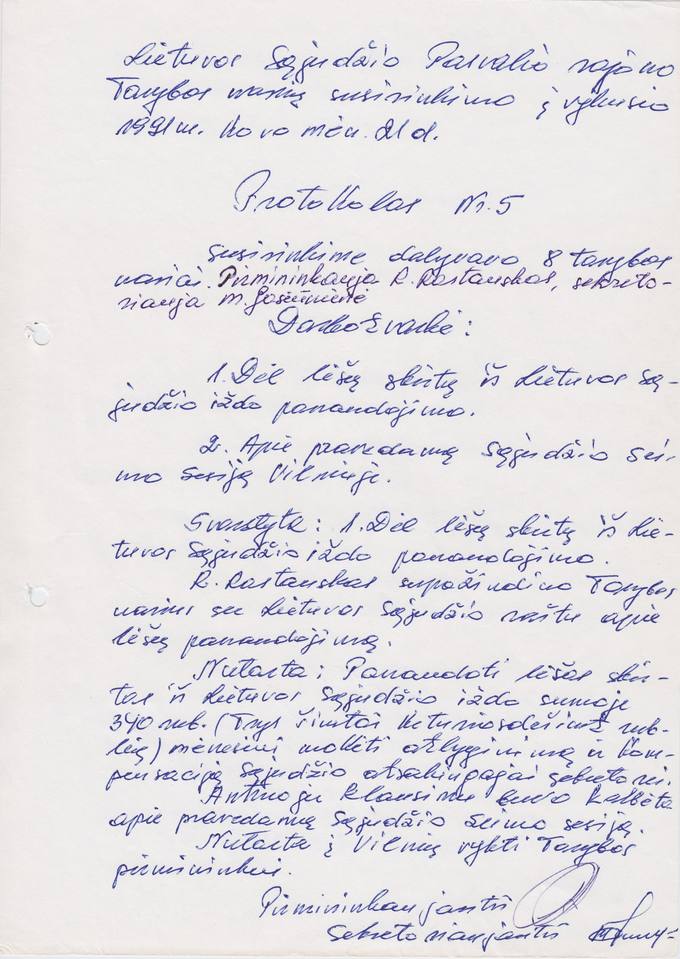 Lietuvos Sąjudžio Pasvalio rajono
Tarybos narių susirinkimo įvykusio
1991 m. Kovo mėn. 21 d.
Protokolas Nr. 5
Susirinkime dalyvavo 8 tarybos
nariai. Pirmininkauja R. Rastauskas, sekreto-
riauja M.
Darbotvarkė:
1. Dėl lėšų skirtų iš Lietuvos Są-
jūdžio iždo panaudojimo.
2. Apie pravedamą Sąjudžio Sei-
mo sesiją Vilniuje.
Svarstyta: 1. Dėl lėšų skirtų iš Lie-
tuvos Sąjudžio iždo panaudojimo.
R. Rastauskas supažindino Tarybos
narius su Lietuvos Sąjudžio raštu apie
lėšų panaudojimą.
Nutarta: Panaudoti lėšas skir-
tas iš Lietuvos Sąjudžio iždo sumoje
340 rub. (Trys šimtai keturiasdešimt rub-
lių) mėnesiui mokėti atlyginimą ir kom-
pensaciją Sąjudžio atsakingajai sekretorei.
Antruoju klausimu buvo kalbėta
apie pravedamą Sąjudžio Seimo sesiją.
Nutarta į Vilnių vykti Tarybos
pirmininkui.
Pirmininkaujantis
Sekretoriaujantis